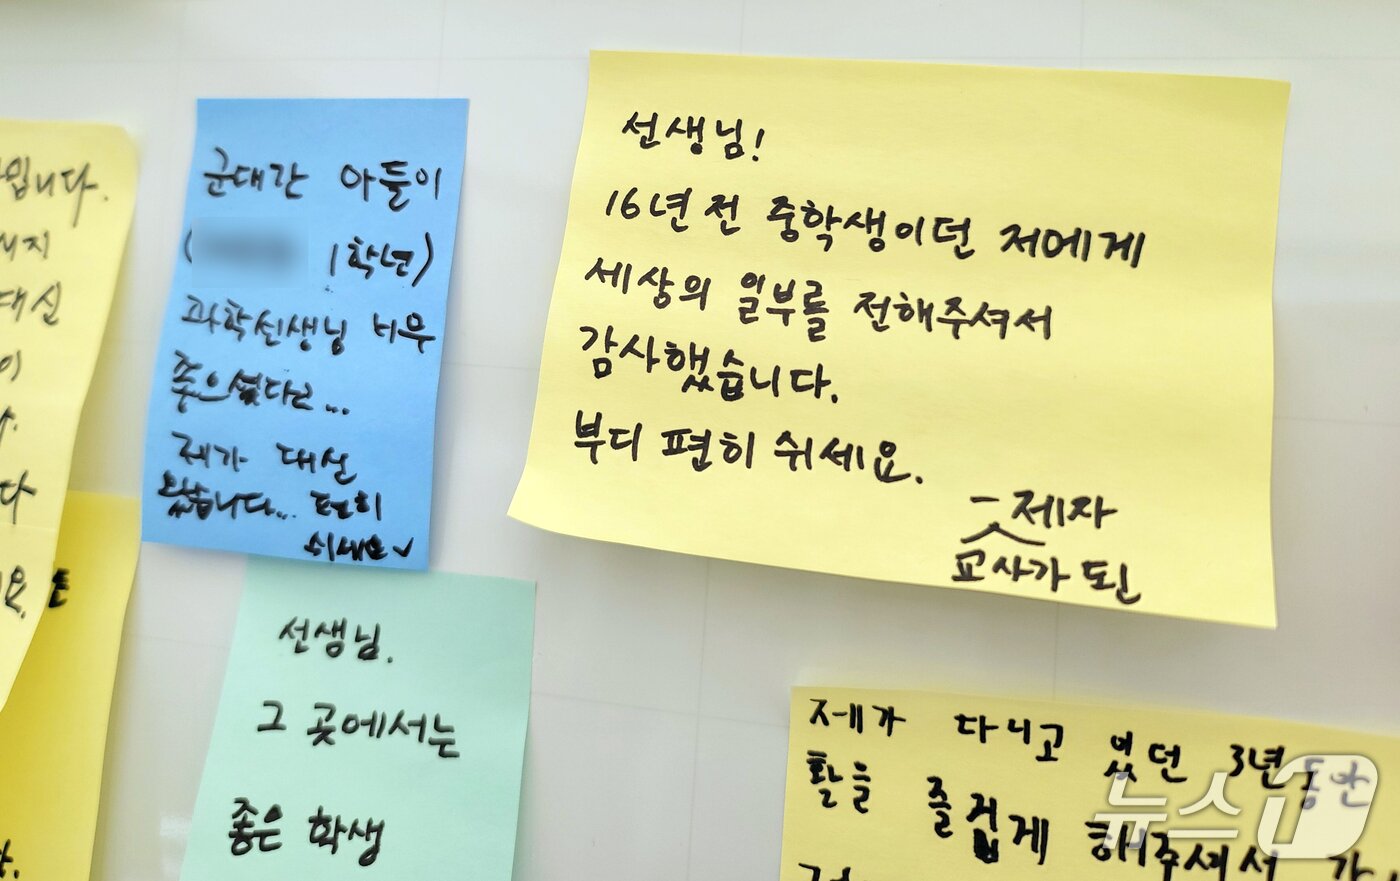 입니다.
대신
군대간 아들이
( 1학년)
과학선생님 너무
좋으셨다고...
제가 대신
왔습니다... 편히
쉬세요
선생님!
16년 전 중학생이던 저에게
세상의 일부를 전해주셔서
감사했습니다.
부디 편히 쉬세요.
- 제자
교사가 된
선생님.
그 곳에서는
좋은 학생
제가 다니고 있던 3년동안
활을 즐겁게 해주셔서
뉴스1